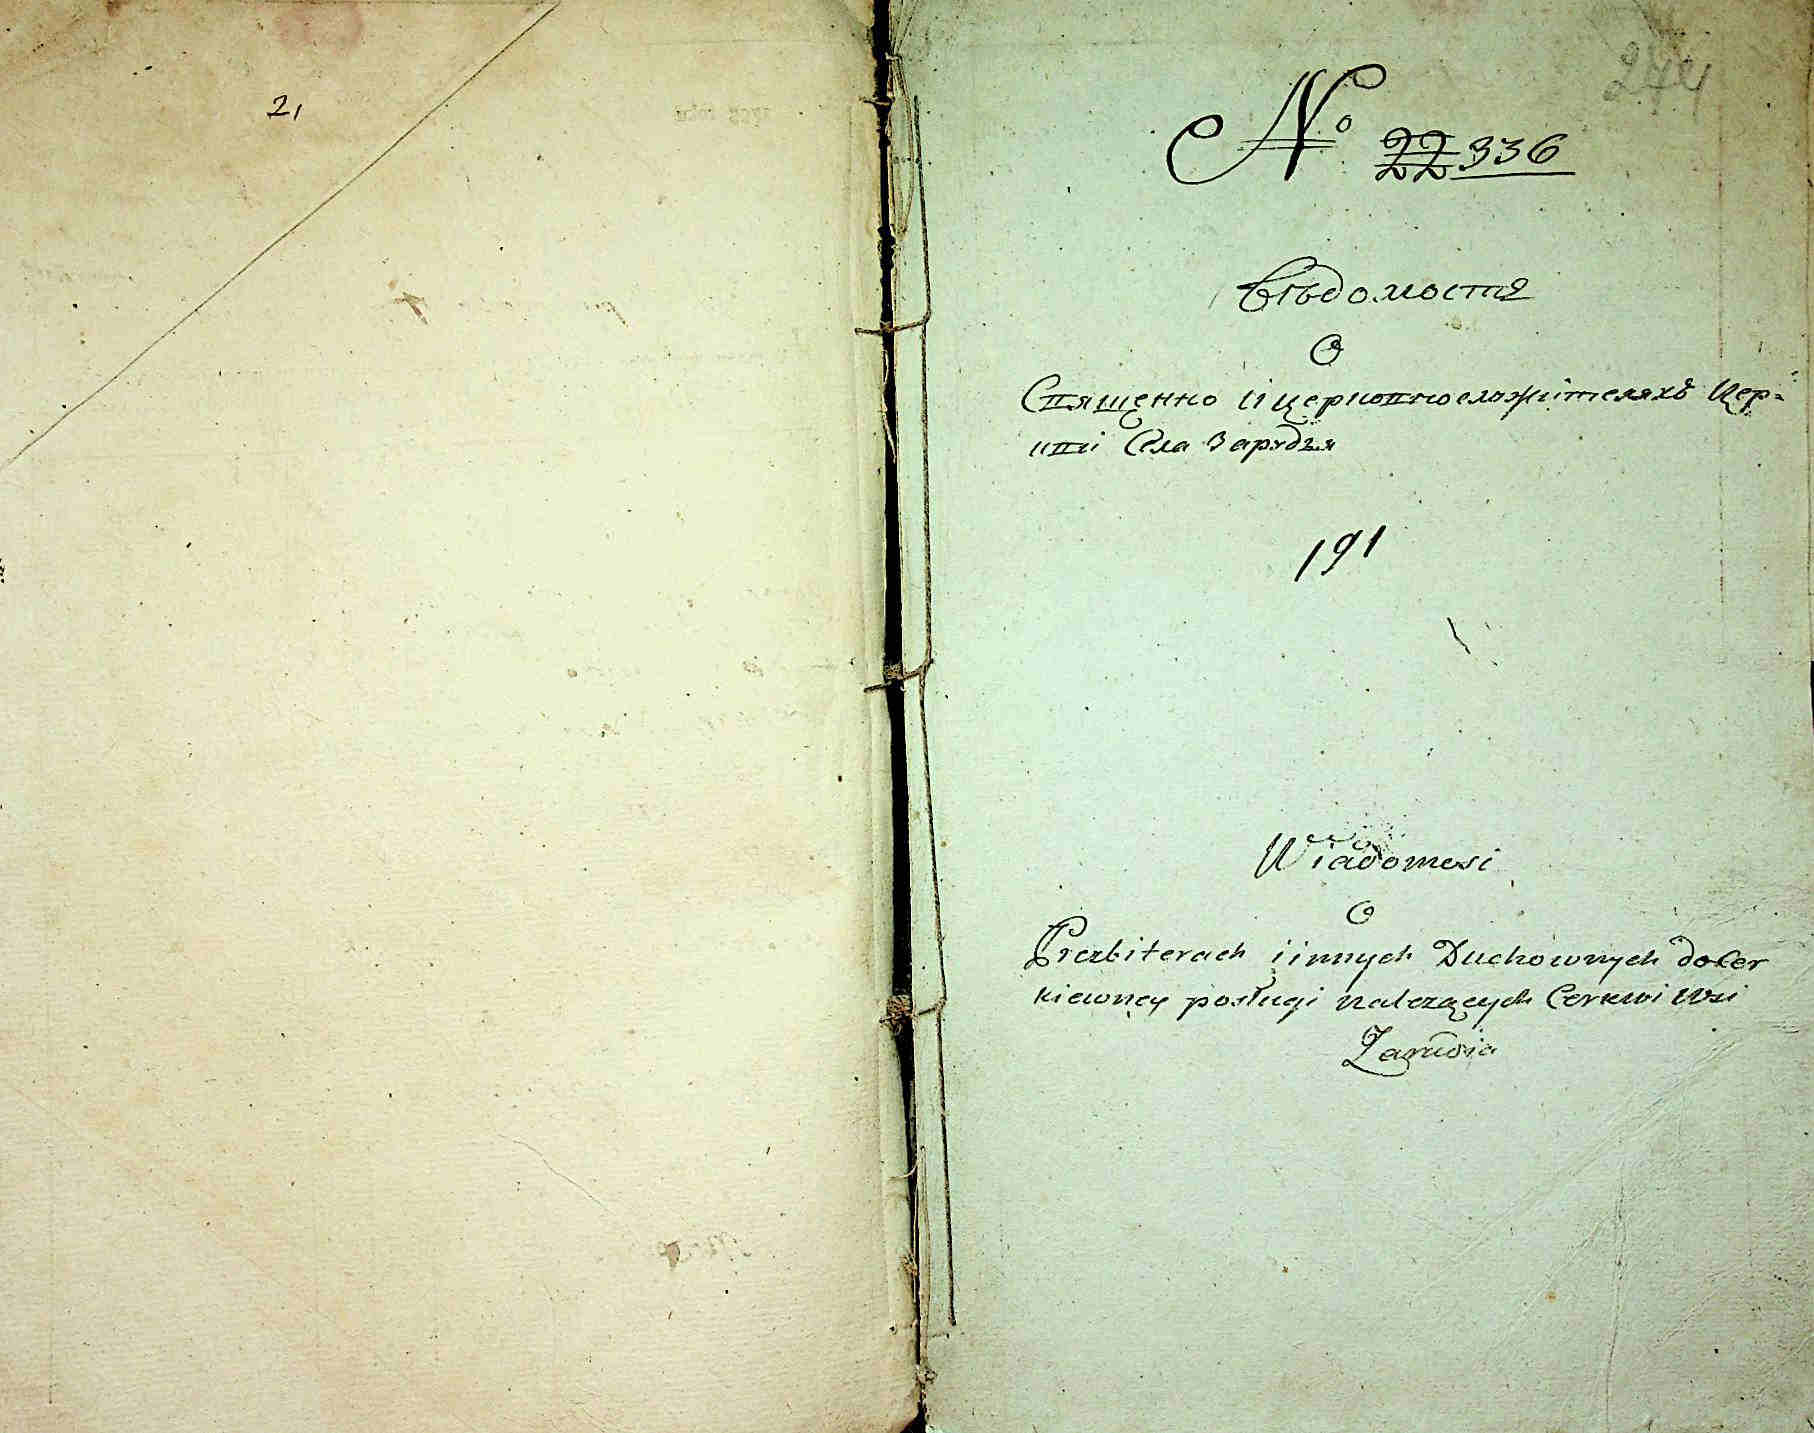 21
274
№ 22 336
Вѣдомость
О
Священно и церковнослужителяхъ Цер-
кви Села Зарудья
191
Wiadomosi
O
Prezbiterach i innych Duchownych do Cer
kiewney posługi nalezących Cerkwi Wsi
Zarudia